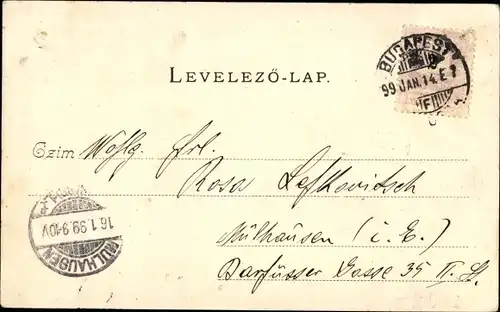 BUDAPEST
99 JAN. 14. E 7
F
LEVELEZŐ-LAP.
Czim Wohlg. Frl.
Rosa Lefkovitsch
Mülhausen (i. E.)
Barfüsser Gasse 35 II. St.
16.1.99. 9-10V
MÜLHAUSEN